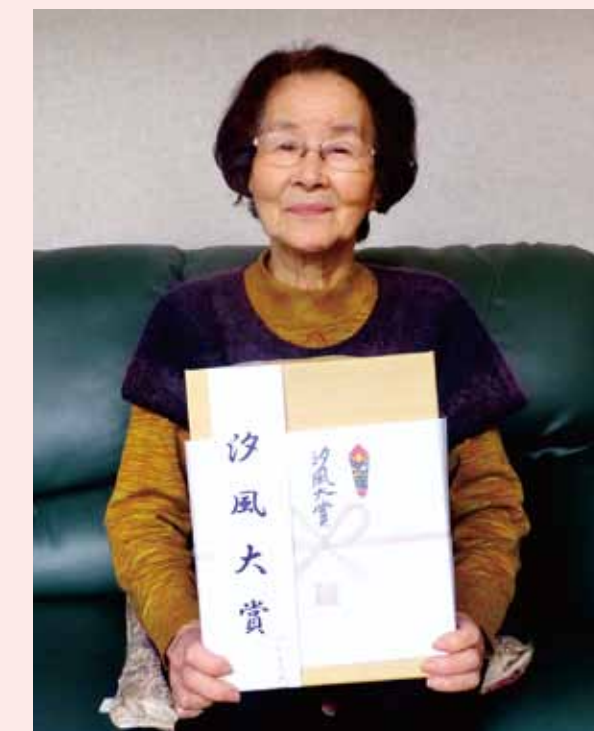 汐風大賞
汐風大賞